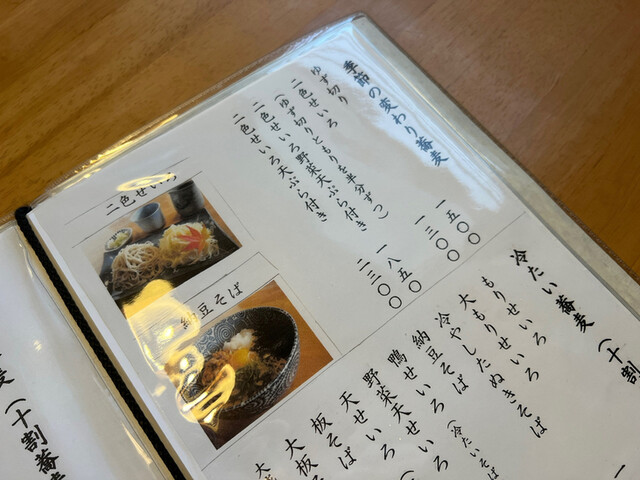 季節の変わり蕎麦
ゆず切り 一五〇〇
二色せいろ 一三〇〇
(ゆず切りともりを半分ずつ)
二色せいろ野菜天ぷら付き 一八五〇
二色せいろ天ぷら付き 二三〇〇
二色せいろ
納豆そば
冷たい蕎麦(十割
もりせいろ
大もりせいろ
冷やしたぬきそば
納豆そば(冷たいそば
鴨せいろ
野菜天せいろ
天せいろ
板そば
大板そば
大
麦(十割蕎麦